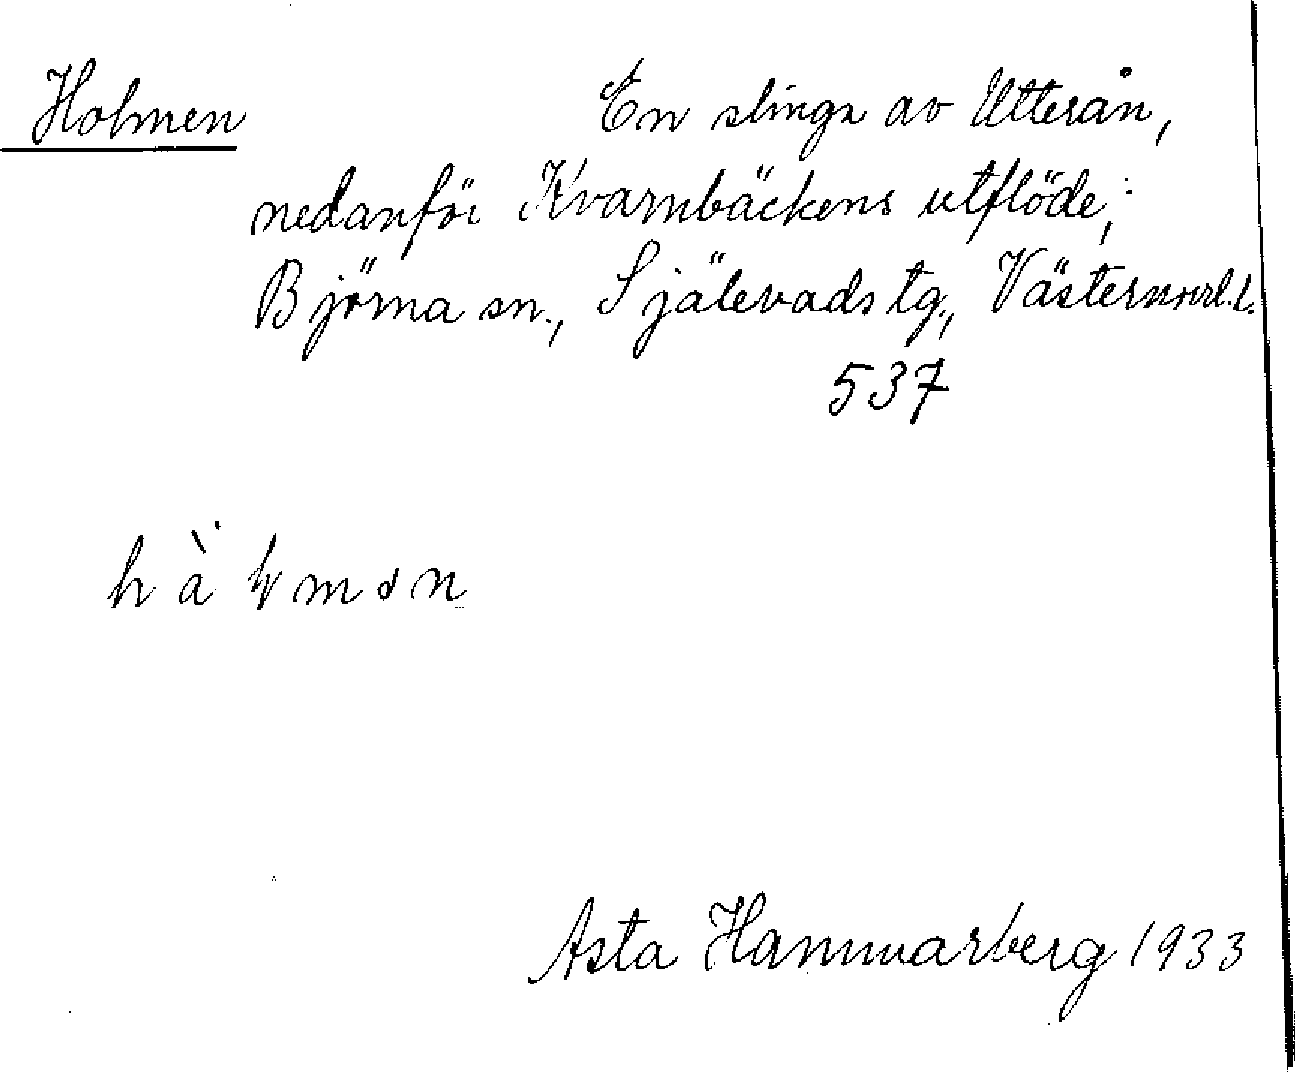 Holmen En slinga av Utterån,
nedanför Kvarnbäckens utflöde;
Björna sn., Själevads tg., Västernorrl. l.
537
Asta Hammarberg 1933